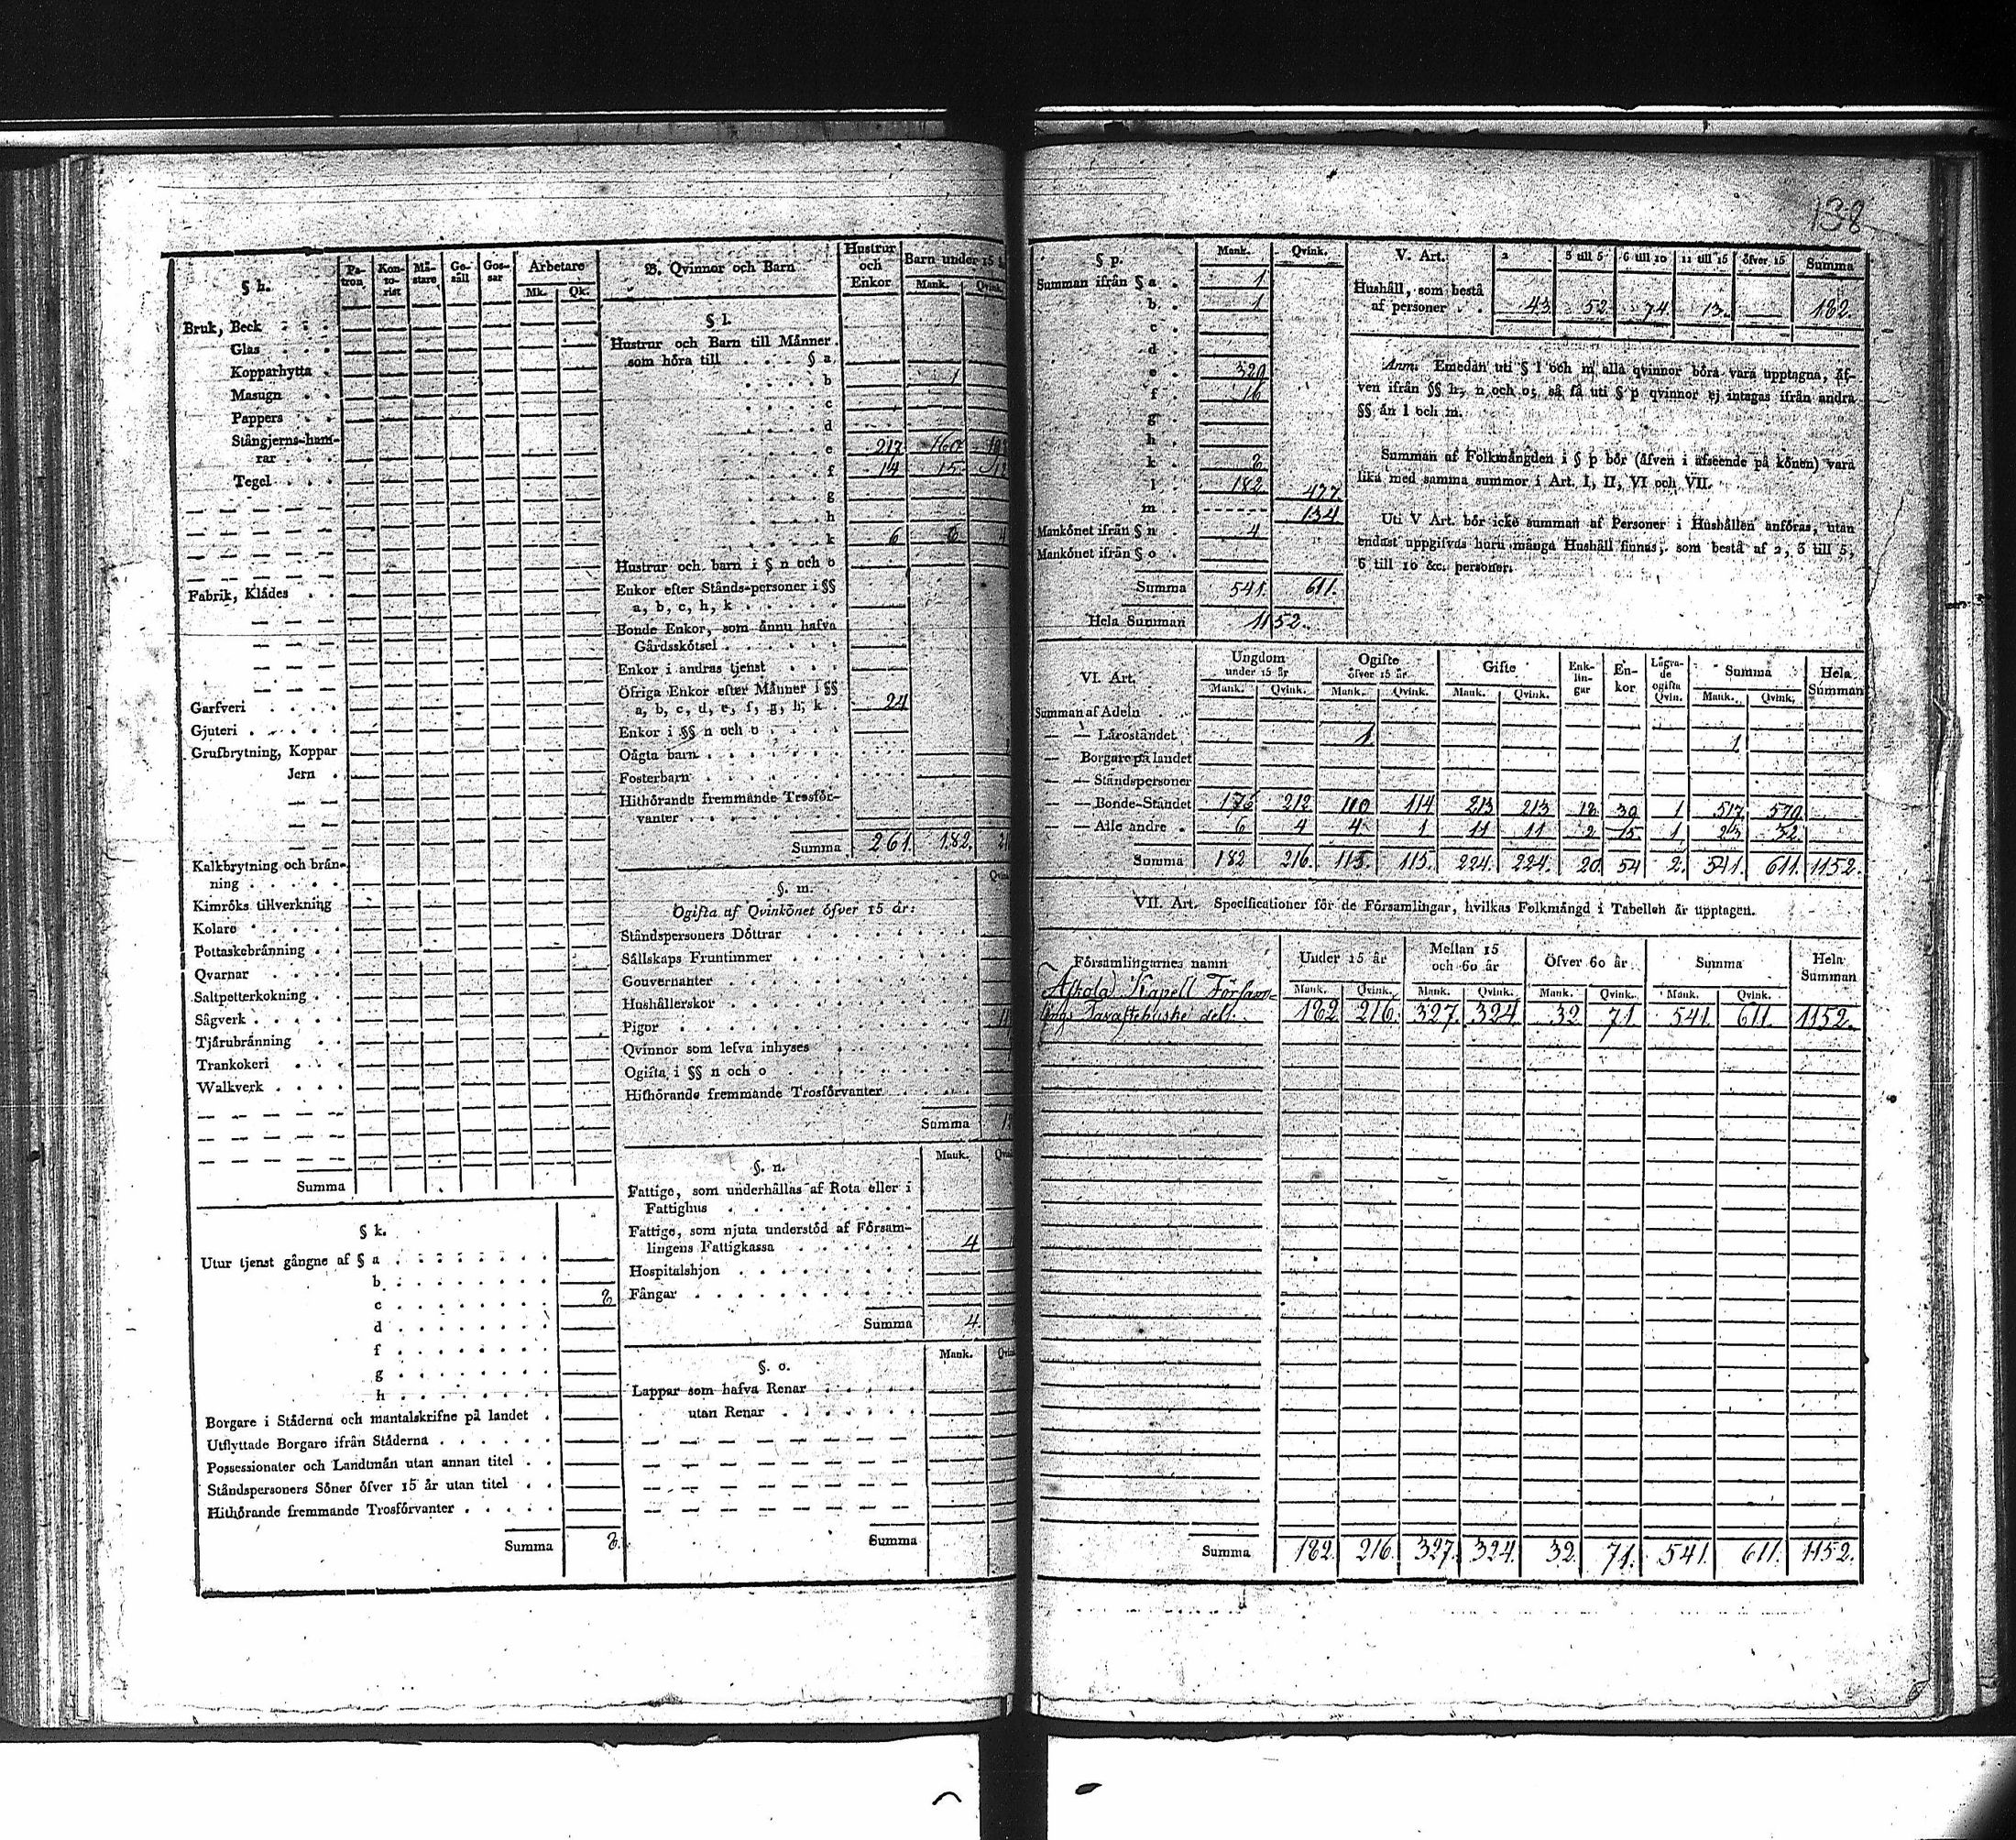 138
§ h.
Pa-tron Kon-to-rist Mä-stare Ge-säll Gos-sar Arbetare
Mk. Qk.
Bruk, Beck
Glas
Kopparhytta
Masugn
Pappers
Stångjerns-ham-
rar
Tegel
Fabrik, Klådes
Garfveri
Gjuteri
Grufbrytning, Koppar
Jern
Kalkbrytning och brån-
ning
Kimröks tillverkning
Kolare
Pottaskebränning
Qvarnar
Saltpetterkokning
Sågverk
Tjärubränning
Trankokeri
Walkverk
Summa
§ k.
Utur tjenst gångne af § a
b
c 8
d
f
g
h
Borgare i Städerna och mantalskrifne på landet
Utflyttade Borgare ifrån Städerna
Possessionater och Landtmän utan annan titel
Ståndspersoners Söner öfver 15 år utan titel
Hithörande fremmande Trosförvanter
Summa 8.
B. Qvinnor och Barn
Hustrur och Enkor Barn under 15
Mank. Qvink.
§ l.
Hustrur och Barn till Männer
som höra till § a
b 1
c
d
e 217
f 14 15
g
h
k 6
Hustrur och barn i § n och o
Enkor efter Stånds-personer i §§
a, b, c, h, k
Bonde Enkor, som ännu hafva
Gårdsskötsel
Enkor i andras tjenst
Öfriga Enkor efter Männer i §§
a, b, c, d, e, f, g, h, k 24
Enkor i §§ n och o
Oägta barn
Fosterbarn
Hithörande fremmande Trosför-
vanter
Summa 261. 182.
§. m.
Ogifta af Qvinkönet öfver 15 år:
Ståndspersoners Döttrar
Sällskaps Fruntimmer
Gouvernanter
Hushållerskor
Pigor
Qvinnor som lefva inhyses
Ogifta i §§ n och o
Hithörande fremmande Trosförvanter
Summa
§. n.
Mank.
Fattige, som underhållas af Rota eller i
Fattighus
Fattige, som njuta understöd af Försam-
lingens Fattigkassa 4
Hospitalshjon
Fångar
Summa 4.
§. o.
Mank.
Lappar som hafva Renar
utan Renar
Summa
§ p. Mank. Qvink.
Summan ifrån § a 1
b 1
c
d
e 329
f 16
g
h
k 8
l 182 477
m 134
Mankönet ifrån § n 4
Mankönet ifrån § o
Summa 541. 611.
Hela Summan 1152.
V. Art. 2 3 till 5 6 till 10 11 till 15 öfver 15 Summa
Hushåll, som bestå
af personer 43. 52. 74. 13. 182.
Anm. Emedan uti § l och m alla qvinnor böra vara upptagna, äf-
ven ifrån §§ h, n och o, så få uti § p qvinnor ej intagas ifrån andra
§§ än l och m.
Summan af Folkmängden i § p bör (äfven i afseende på könen) vara
lika med samma summor i Art. I, II, VI och VII.
Uti V Art. bör icke summan af Personer i Hushållen anföras, utan
endast uppgifvas huru många Hushåll finnas, som bestå af 2, 3 till 5,
6 till 10 &c. personer.
VI. Art. Ungdom under 15 år Ogifte öfver 15 år Gifte Enk-lin-gar En-kor Lägra-de ogifta Qvin. Summa Hela Summan
Mank. Qvink. Mank. Qvink. Mank. Qvink. Mank. Qvink.
Summan af Adeln
— — Läroståndet 1 1
— Borgare på landet
— — Ståndspersoner
— — Bonde-Ståndet 176 212 110 114 213 213 18 39 1 517 579
— — Alle andre 6 4 4 1 11 11 2 15 1 23 32
Summa 182 216. 115. 115. 224. 224. 20. 54 2. 541. 611. 1152.
VII. Art. Specificationer för de Församlingar, hvilkas Folkmängd i Tabellen är upptagen.
Församlingarnes namn Under 15 år Mellan 15 och 60 år Öfver 60 år Summa Hela Summan
Mank. Qvink. Mank. Qvink. Mank. Qvink. Mank. Qvink.
Askola Kapell Försam-
lings Tavastehuske del. 182 216. 327. 324. 32. 71. 541. 611. 1152.
Summa 182. 216. 327. 324. 32. 71. 541. 611. 1152.